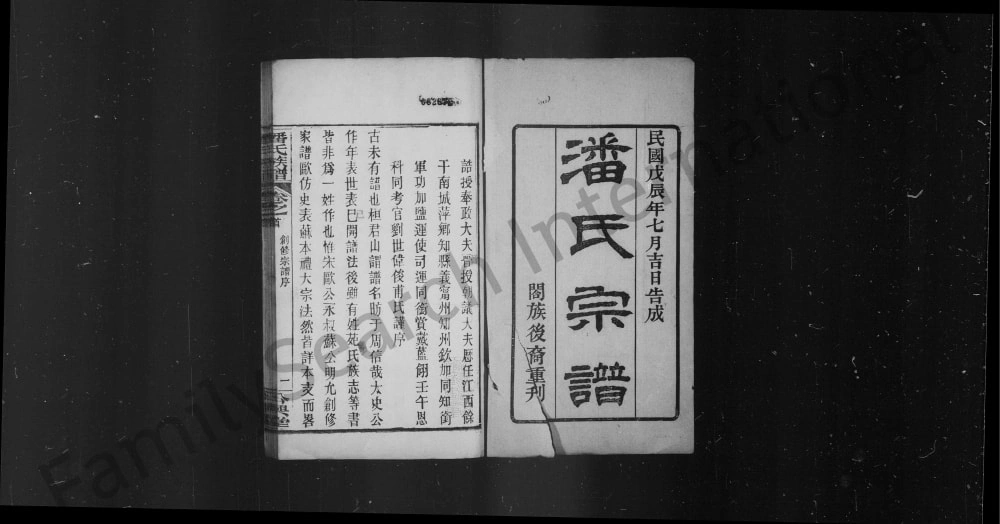 民國戊辰年七月吉日告成
潘氏宗譜
閤族後裔重刊
誥授奉政大夫晉授朝議大夫歷任江西餘
干南城萍鄉知縣義甯州知州欽加同知銜
軍功加鹽運使司運同銜賞戴藍翎壬午恩
科同考官劉世偉俊甫氏謹序
古未有譜也桓君山謂譜名昉于周信哉太史公
作年表世表已開譜法後雖有姓苑氏族志等書
皆非爲一姓作也惟宋歐公永叔蘇公明允創修
家譜歐仿史表蘇本禮大宗法然皆詳本支而畧
潘氏族譜
卷之首
創修宗譜序
FamilySearch International